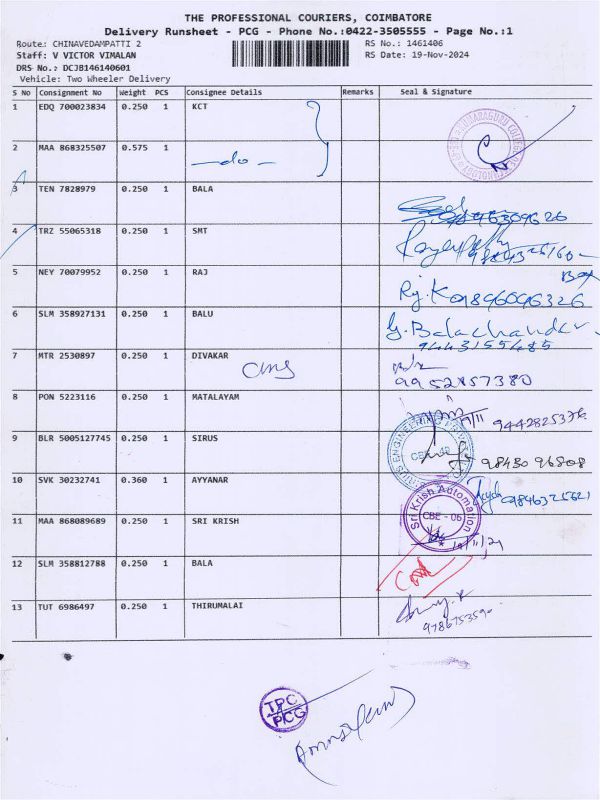 THE PROFESSIONAL COURIERS, COIMBATORE
Delivery Runsheet - PCG - Phone No.:0422-3505555 - Page No.:1
Route: CHINAVEDAMPATTI 2 RS No.: 1461406
Staff: V VICTOR VIMALAN RS Date: 19-Nov-2024
DRS No.: DCJB146140601
Vehicle: Two Wheeler Delivery
S No Consignment No Weight PCS Consignee Details Remarks Seal & Signature
1 EDQ 700023834 0.250 1 KCT
2 MAA 868325507 0.575 1 -do-
3 TEN 7828979 0.250 1 BALA
4 TRZ 55065318 0.250 1 SMT
5 NEY 70079952 0.250 1 RAJ
6 SLM 358927131 0.250 1 BALU G. Balachandar.
9443155485
7 MTR 2530897 0.250 1 DIVAKAR
9952157380
8 PON 5223116 0.250 1 MATALAYAM
9 BLR 5005127745 0.250 1 SIRUS 98430 96808
10 SVK 30232741 0.360 1 AYYANAR
11 MAA 868089689 0.250 1 SRI KRISH Sri Krish Automation
CBE - 06
12 SLM 358812788 0.250 1 BALA
13 TUT 6986497 0.250 1 THIRUMALAI
TPC
PCG